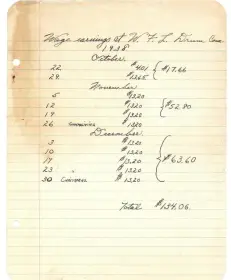 Wage earnings at W F L Drum Co
1938
October
22 $4.01 { $17.66
29 $13.65
November
5 $13.20
12 $13.20 { $52.80
19 $13.20
26 $13.20
December
3 $13.20
10 $13.20
17 $13.20 { $63.60
23 " $13.20
30 Christmas $13.20
Total $134.06